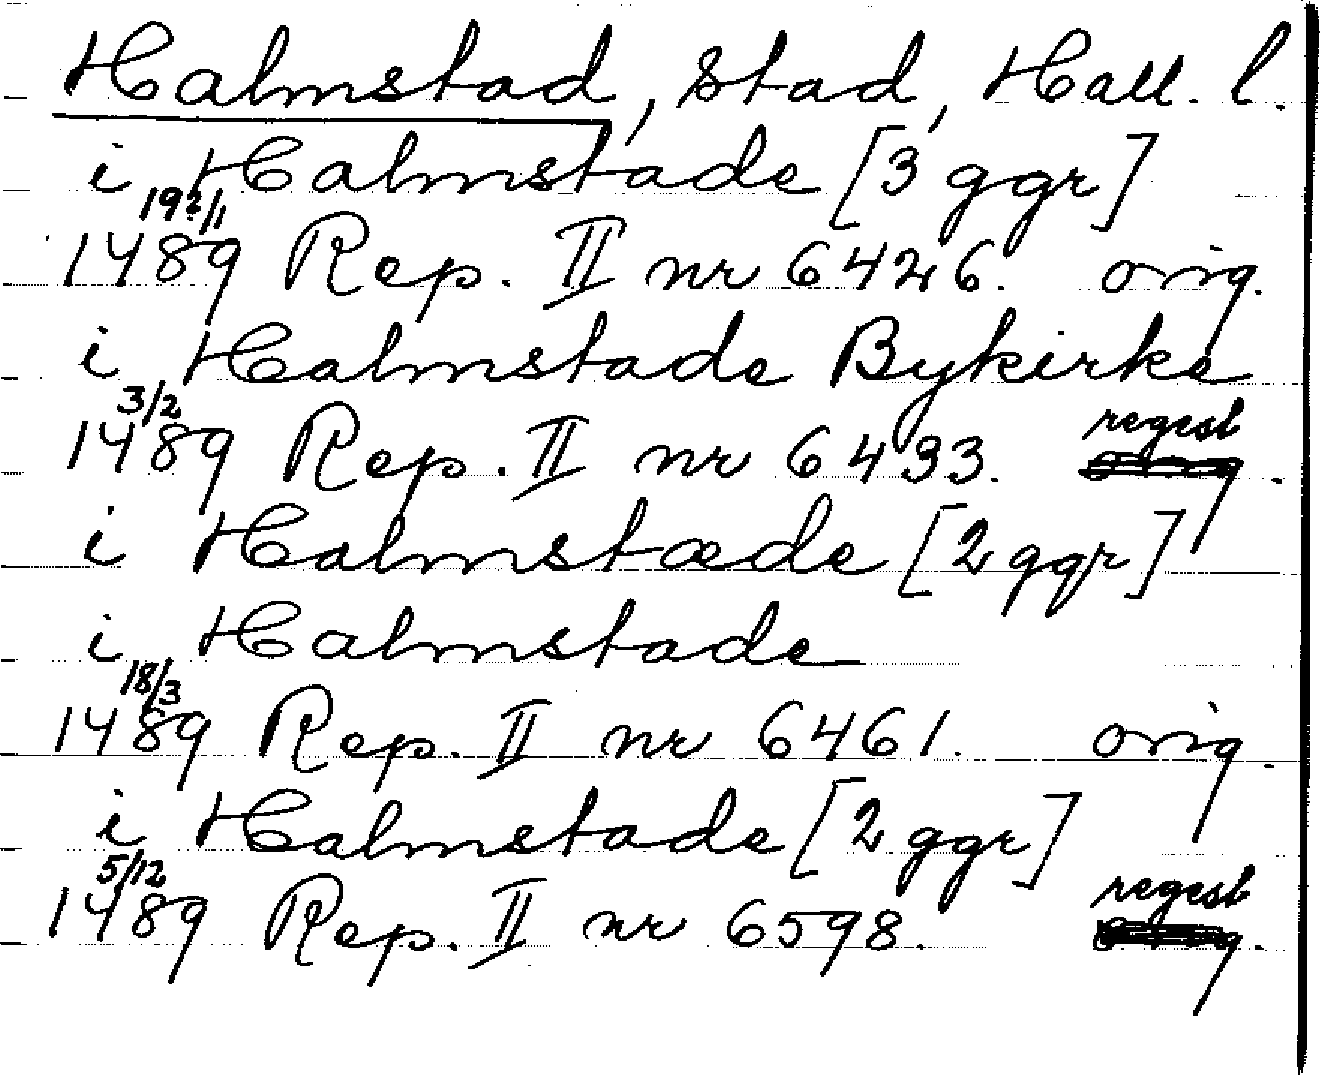 Halmstad, stad, Hall. l.
i Halmstade [3 ggr]
19?/1
1489 Rep. II nr 6426. orig.
i Halmstade Bykirke
3/2 regest
1489 Rep. II nr 6433.
i Halmstæde [2 ggr]
i Halmstade
18/3
1489 Rep. II nr 6461. orig.
i Halmstade [2 ggr]
5/12 regest
1489 Rep. II nr 6598.